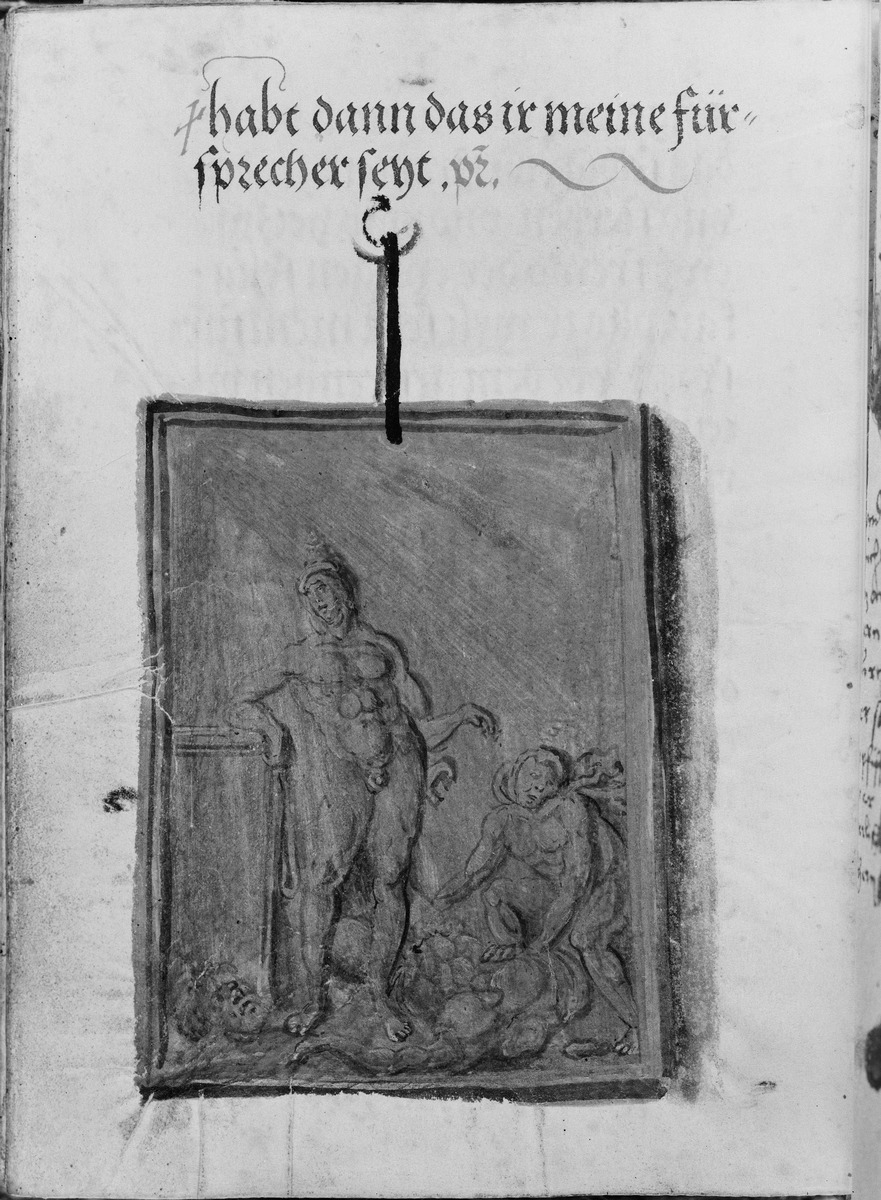 habt dann das ir meine für-
sprecher seyt, pr̄.